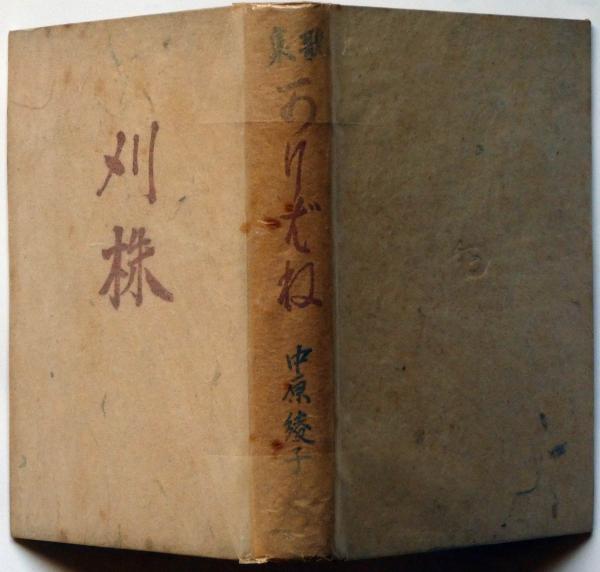 刈株
歌集
かりばね
中原綾子